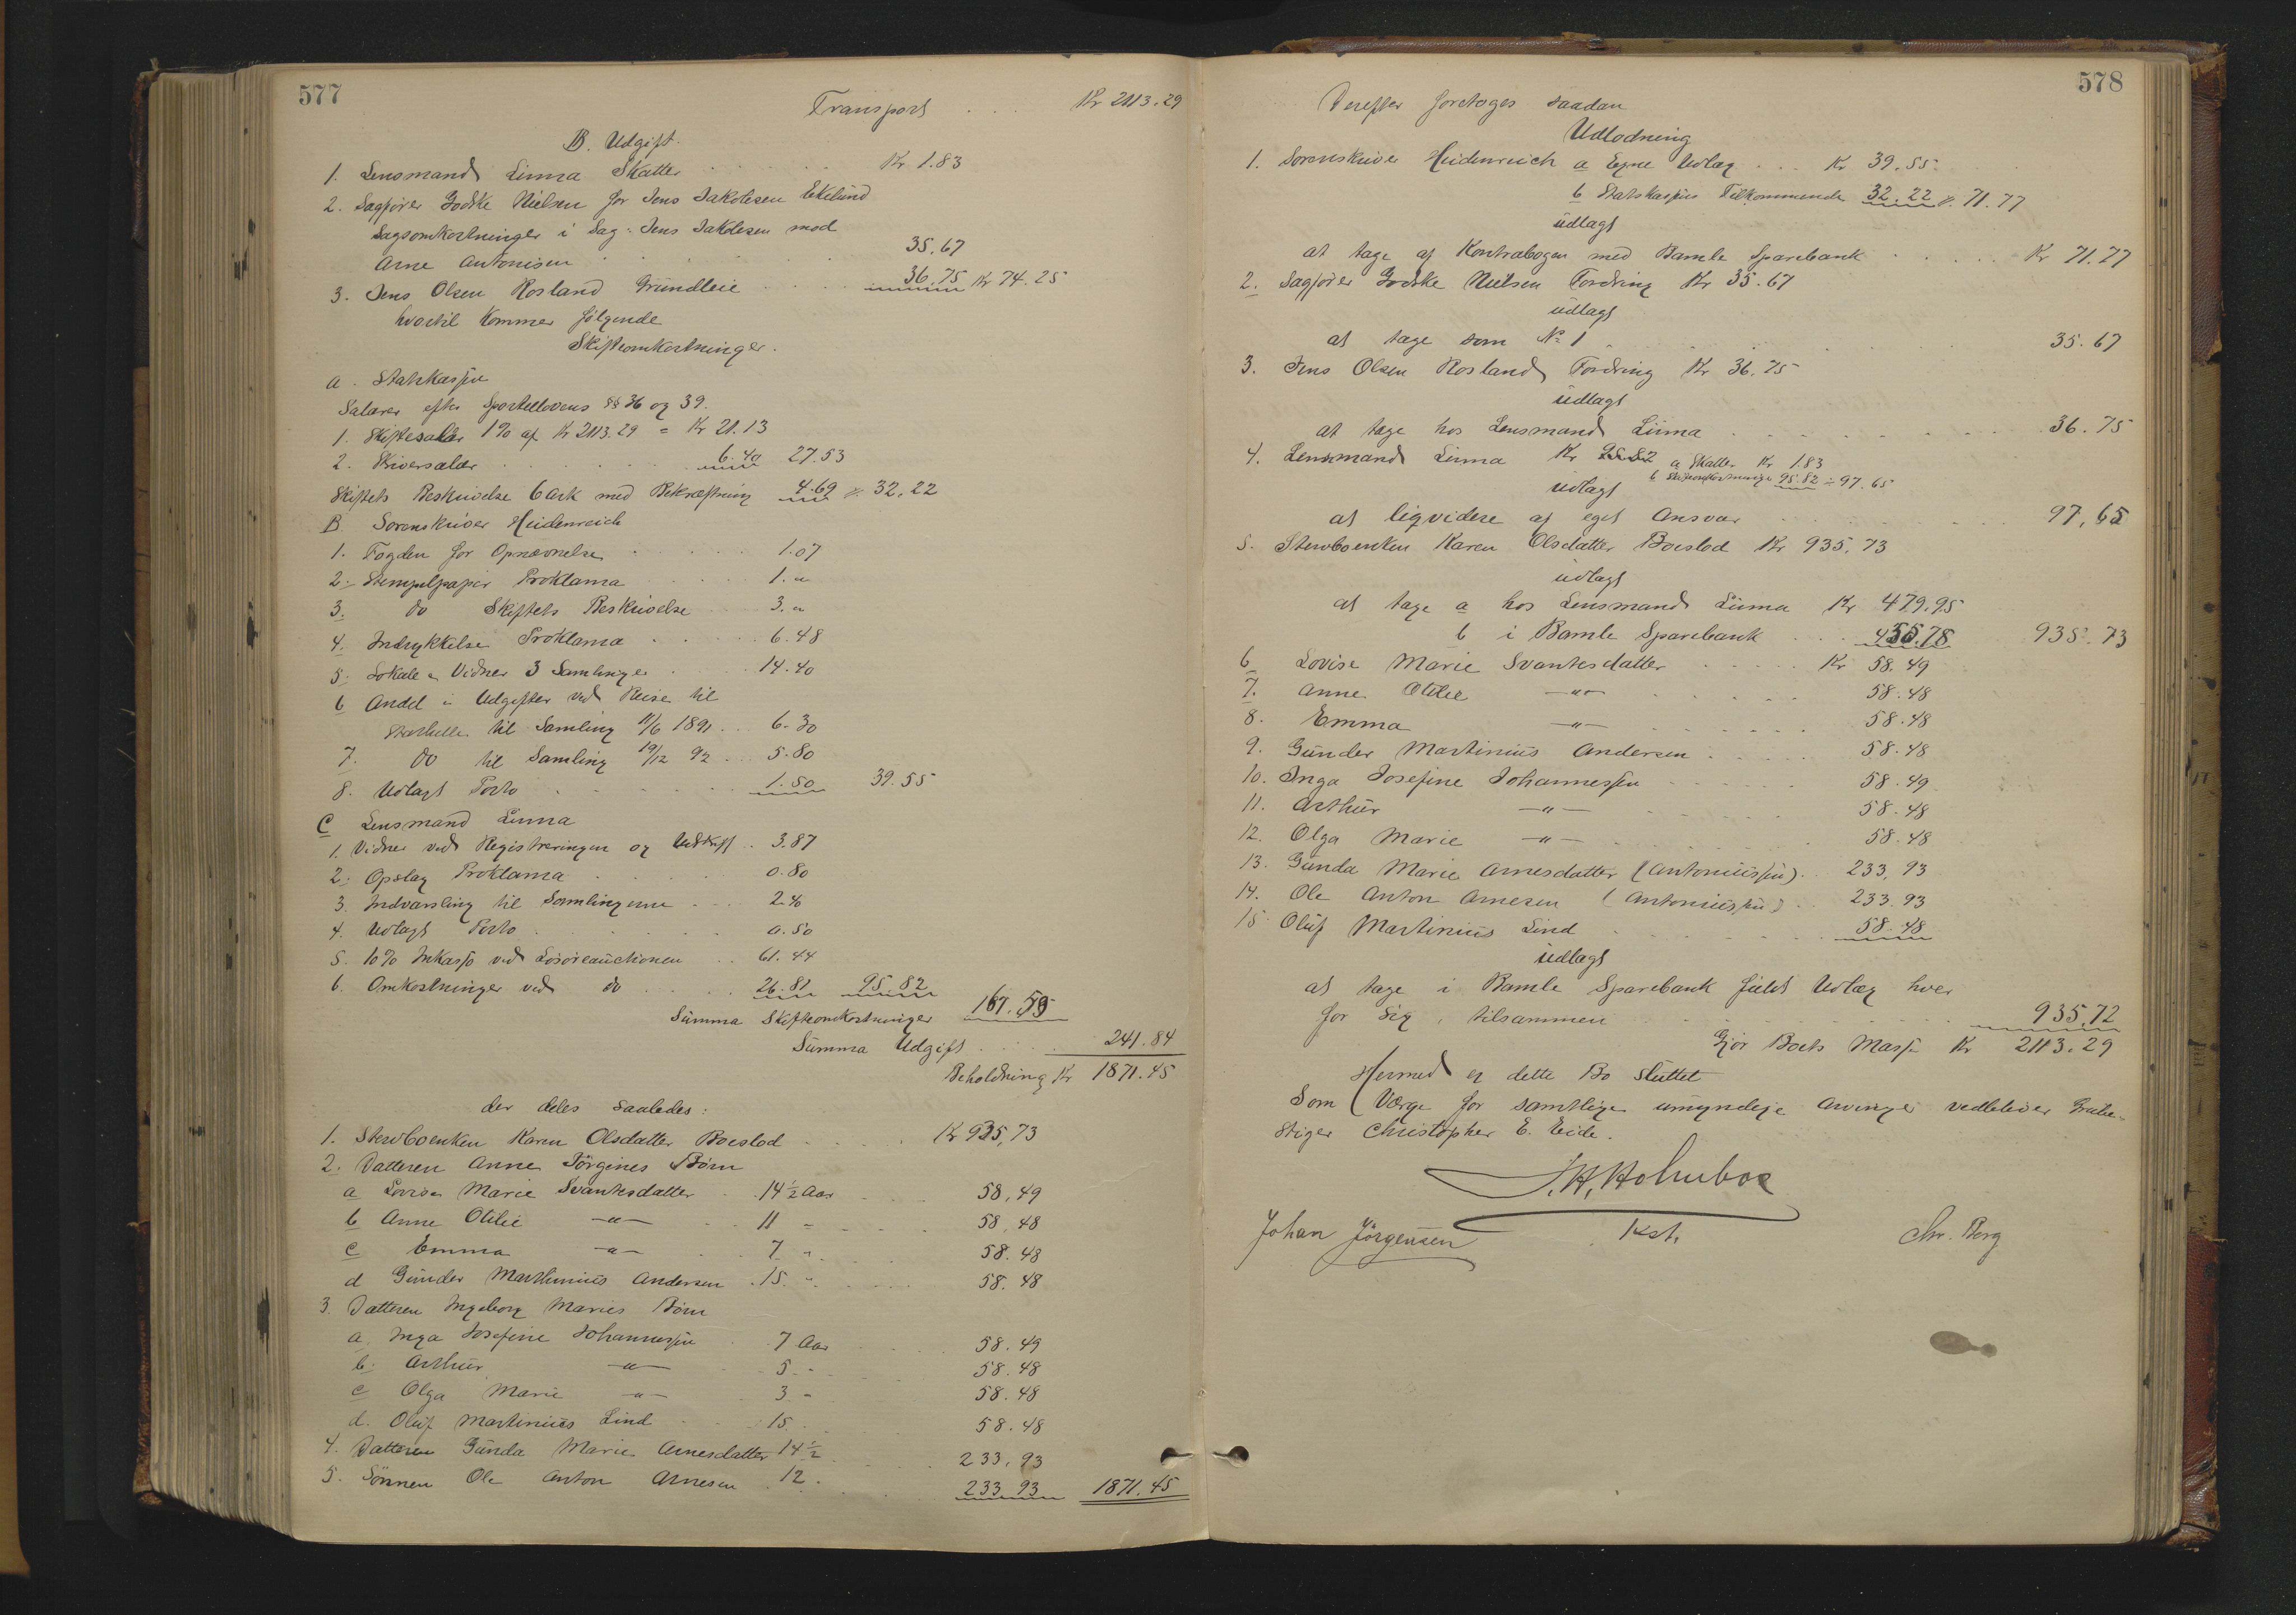 577
Transport . . . Kr 2113.29
B. Udgift.
1. Lensmand Linna Skatter . . . . Kr 1.83
2. Sagfører Godske Nielsen for Jens Jakobsen Ekelund
Sagsomkostninger i Sag: Jens Jakobsen mod
Arne Antonisen . . . . 35.67
3. Jens Olsen Rosland Grundleie . . . . 36.75 Kr 74.25
hvortil kommer følgende
Skifteomkostninger.
a. Statskassen
Salarer efter Sportellovens §§ 36 og 39.
1. Skiftesalær 1% af Kr 2113.29 = Kr 21.13
2. Skriversalær . . . . 6.40 27.53
Skiftets Beskrivelse 6 Ark med Bekræftning 4.69 32.22
B Sorenskriver Heidenreich
1. Fogden for Opnævnelse . . . . 1.07
2. Stempelpapir Proklama . . . . 1.„
3. do Skiftets Beskrivelse 3.„
4. Indrykkelse Proklama . . . . 6.48
5. Lokale & Vidner 3 Samlinger . . 14.40
6 Andel i Udgifter ved Reise til
Stathelle til Samling 11/6 1891 . . 6.30
7. do til Samling 19/12 92 . . 5.80
8. Udlagt Porto . . . . 1.50 39.55
C Lensmand Linna
1. Vidner ved Registreringen og Udskrift . . 3.87
2. Opslag Proklama . . . . 0.80
3. Indvarsling til Samlingerne . . . . 2.40
4. Udlagt Porto . . . . 0.50
5. 10% Inkasso ved Løsøreauctionen . . 61.44
6. Omkostninger ved do . . . . 26.81 95.82
Summa Skifteomkostninger 167.59
Summa Udgift . . . . 241.84
Beholdning Kr 1871.45
der deles saaledes:
1. Stervboenken Karen Olsdatter Boeslod . . . . Kr 935,73
2. Datteren Anne Jörgines Børn
a Lovise Marie Svantesdatter . 14½ Aar . . 58,49
b Anne Otilie —„— . . 11 - . . . 58,48
c Emma —„— . . 7 „ . . 58.48
d Gunder Marthinius Andersen . 15. „ . . . 58.48
3. Datteren Ingeborg Maries Børn
a. Inga Josefine Johannessen . 7 Aar . . . 58.49
b. Arthur —„— . . 5 - . . . 58.48
c Olga Marie —„— . . 3 - . . . 58.48
d. Oluf Martinius Lind . . 15. . . 58.48
4. Datteren Gunda Marie Arnesdatter 14½ . . . 233,93
5. Sönnen Ole Anton Arnesen . 12. . . . 233.93 1871.45
578
Derefter foretoges saadan
Udlodning
1. Sorenskriver Heidenreich a Egne Udlæg . . . Kr 39.55.
b Statskassens Tilkommende 32.22 71.77
udlagt
at tage af Kontrabogen med Bamle Sparebank . . . . . . Kr 71.77
2. Sagfører Godske Nielsen Fordring Kr 35.67
udlagt
at tage som No 1 . . . . 35.67
3. Jens Olsen Rosland Fordring Kr 36.75
udlagt
at tage hos Lensmand Linna . . . . 36.75
4. Lensmand Linna Kr 95.82 a Skatter Kr 1.83
b Skifteomkostninger 95.82 = 97.65
udlagt
at liqvidere af eget Ansvar . . . . 97,65
5. Stervboenken Karen Olsdatter Boeslod Kr 935,73
udlagt
at tage a hos Lensmand Linna Kr 479.95
b i Bamle Sparebank . . . 455.78 935.73
6 Lovise Marie Svantesdatter . . . . . Kr 58.49
7. Anne Otilie —„— . . . . 58.48
8. Emma —„— . . . . 58.48
9. Gunder Martinius Andersen . . . . . 58.48
10. Inga Josefine Johannessen . . . . 58.49
11. Arthur —„— . . . . 58.48
12. Olga Marie —„— . . . . 58.48
13. Gunda Marie Arnesdatter (Antoniussen) . . 233,93
14. Ole Anton Arnesen (Antoniussen) . . 233.93
15. Oluf Martinius Lind . . . . 58.48
udlagt
at tage i Bamle Sparebank fuldt Udlæg hver
for sig, tilsammen . . . . 935,72
Gjör Boets Masse Kr 2113.29
Hermed er dette Bo sluttet
Som Værge for samtlige umyndige Arvinger vedbliver Grube-
stiger Christopher E. Eide.
J. H. Holmboe
Johan Jörgensen Kst. Chr. Berg